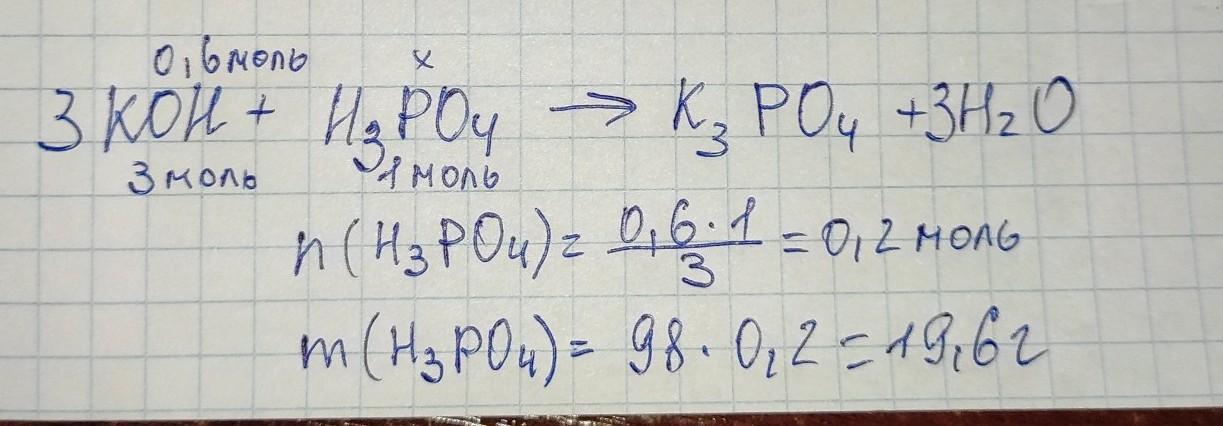 0,6 моль x
3 KOH + H₃PO₄ → K₃PO₄ + 3H₂O
3 моль 1 моль
n(H₃PO₄) = 0,6 · 1 / 3 = 0,2 моль
m(H₃PO₄) = 98 · 0,2 = 19,6 г